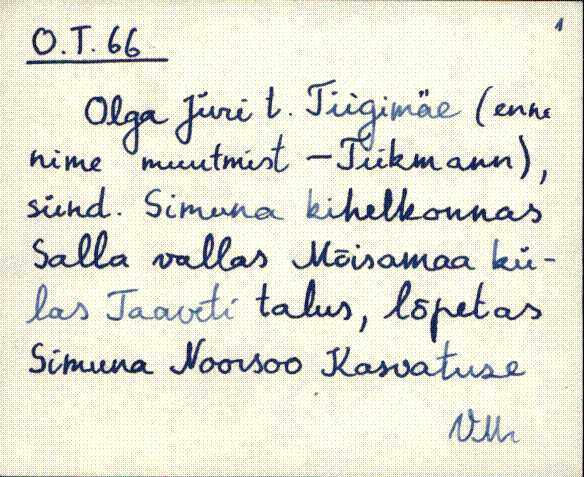 1
O.T. 66
Olga Jüri t. Tiigimäe (enne
nime muutmist - Tiikmann),
sünd. Simuna kihelkonnas
Salla vallas Mõisamaa kü-
las Taaveti talus, lõpetas
Simuna Noorsoo Kasvatuse